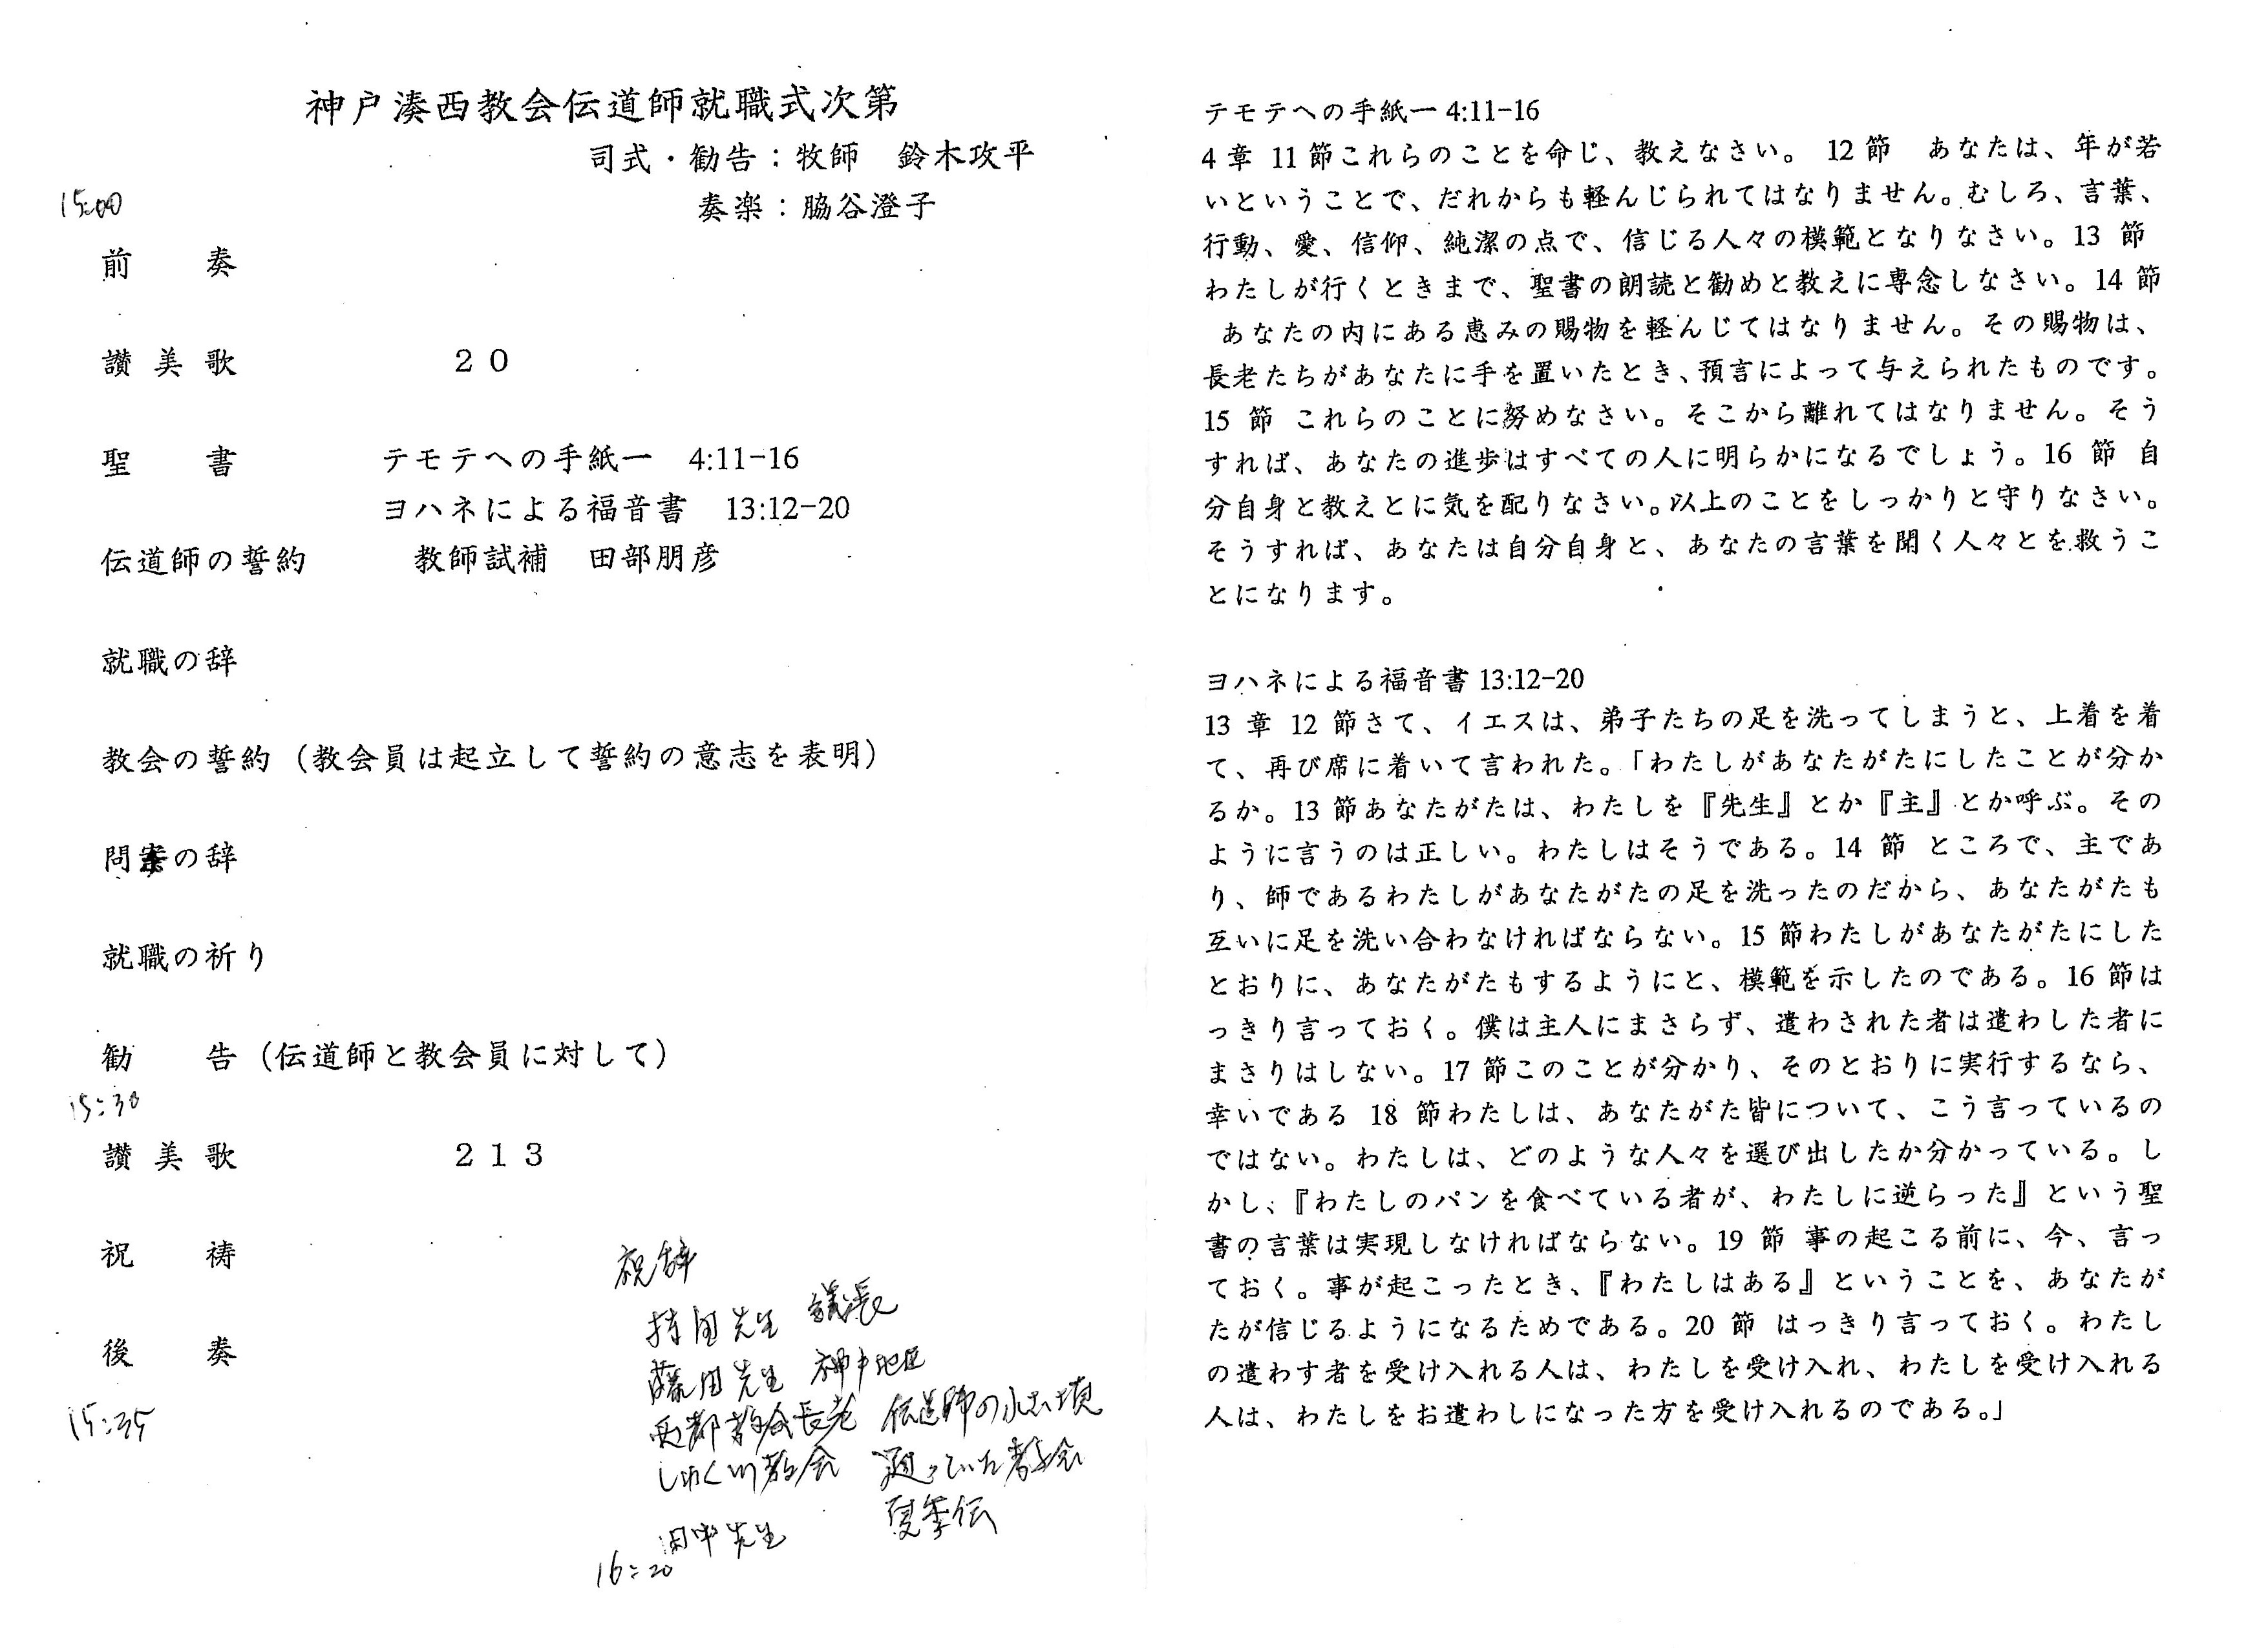 神戸湊西教会伝道師就職式次第
司式・勧告：牧師　鈴木攻平
奏楽：脇谷澄子
15:00
前　　奏
讃 美 歌　　　　２０
聖　　書　　テモテへの手紙一　4:11-16
ヨハネによる福音書　13:12-20
伝道師の誓約　　教師試補　田部朋彦
就職の辞
教会の誓約（教会員は起立して誓約の意志を表明）
問　の辞
就職の祈り
勧　　告（伝道師と教会員に対して）
15:30
讃 美 歌　　　　２１３
祝　　祷
後　　奏
15:35
祝辞
持田先生　議長
藤田先生　神戸地区
教会長老　伝道師の
しゅく川教会　通っていた教会
夏季伝
田中先生
16:20
テモテへの手紙一 4:11-16
4 章 11 節これらのことを命じ、教えなさい。 12 節　あなたは、年が若
いということで、だれからも軽んじられてはなりません。むしろ、言葉、
行動、愛、信仰、純潔の点で、信じる人々の模範となりなさい。13 節
わたしが行くときまで、聖書の朗読と勧めと教えに専念しなさい。14 節
あなたの内にある恵みの賜物を軽んじてはなりません。その賜物は、
長老たちがあなたに手を置いたとき、預言によって与えられたものです。
15 節 これらのことに努めなさい。そこから離れてはなりません。そう
すれば、あなたの進歩はすべての人に明らかになるでしょう。16 節 自
分自身と教えとに気を配りなさい。以上のことをしっかりと守りなさい。
そうすれば、あなたは自分自身と、あなたの言葉を聞く人々とを救うこ
とになります。
ヨハネによる福音書 13:12-20
13 章 12 節さて、イエスは、弟子たちの足を洗ってしまうと、上着を着
て、再び席に着いて言われた。「わたしがあなたがたにしたことが分か
るか。13 節あなたがたは、わたしを『先生』とか『主』とか呼ぶ。その
ように言うのは正しい。わたしはそうである。14 節 ところで、主であ
り、師であるわたしがあなたがたの足を洗ったのだから、あなたがたも
互いに足を洗い合わなければならない。15 節わたしがあなたがたにした
とおりに、あなたがたもするようにと、模範を示したのである。16 節は
っきり言っておく。僕は主人にまさらず、遣わされた者は遣わした者に
まさりはしない。17 節このことが分かり、そのとおりに実行するなら、
幸いである 18 節わたしは、あなたがた皆について、こう言っているの
ではない。わたしは、どのような人々を選び出したか分かっている。し
かし、『わたしのパンを食べている者が、わたしに逆らった』という聖
書の言葉は実現しなければならない。19 節 事の起こる前に、今、言っ
ておく。事が起こったとき、『わたしはある』ということを、あなたが
たが信じるようになるためである。20 節 はっきり言っておく。わたし
の遣わす者を受け入れる人は、わたしを受け入れ、わたしを受け入れる
人は、わたしをお遣わしになった方を受け入れるのである。」